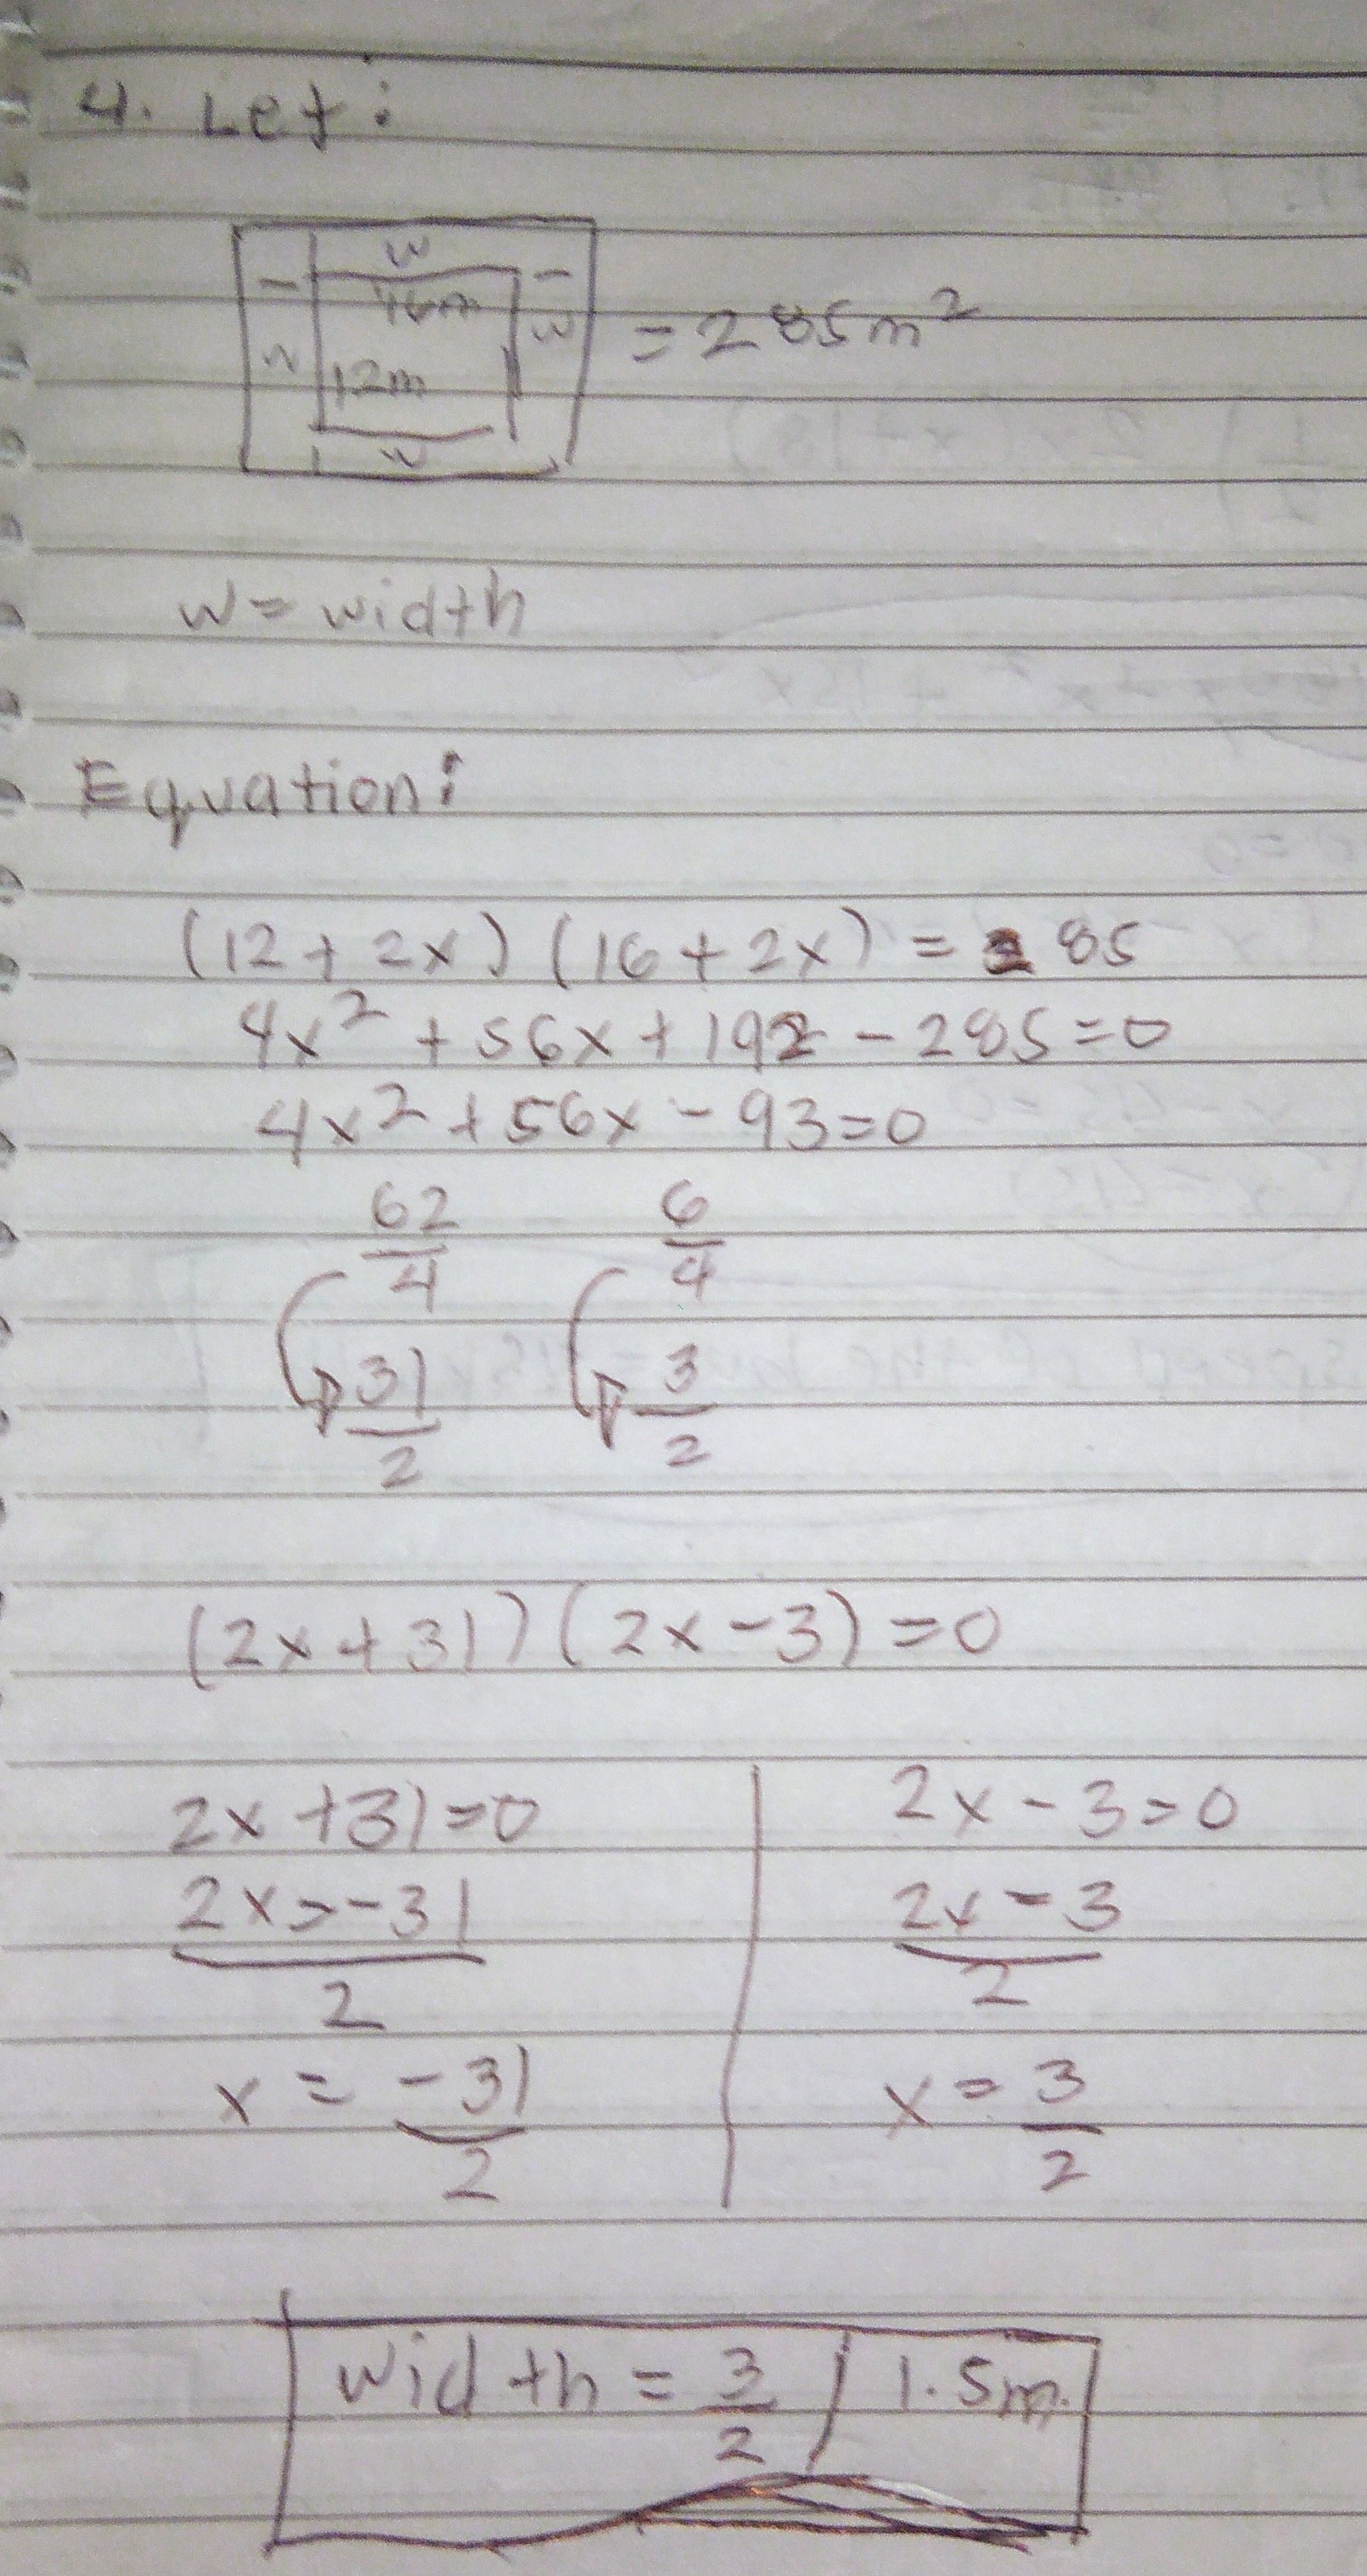 4. Let:
w
16m
w
w
12m
w
= 285m²
w = width
Equation:
(12 + 2x) (16 + 2x) = 285
4x² + 56x + 192 - 285 = 0
4x² + 56x - 93 = 0
62/4 6/4
31/2 3/2
(2x + 31) (2x - 3) = 0
2x + 31 = 0 2x - 3 = 0
2x = -31 2x = 3
2 2
x = -31/2 x = 3/2
width = 3/2 / 1.5m.